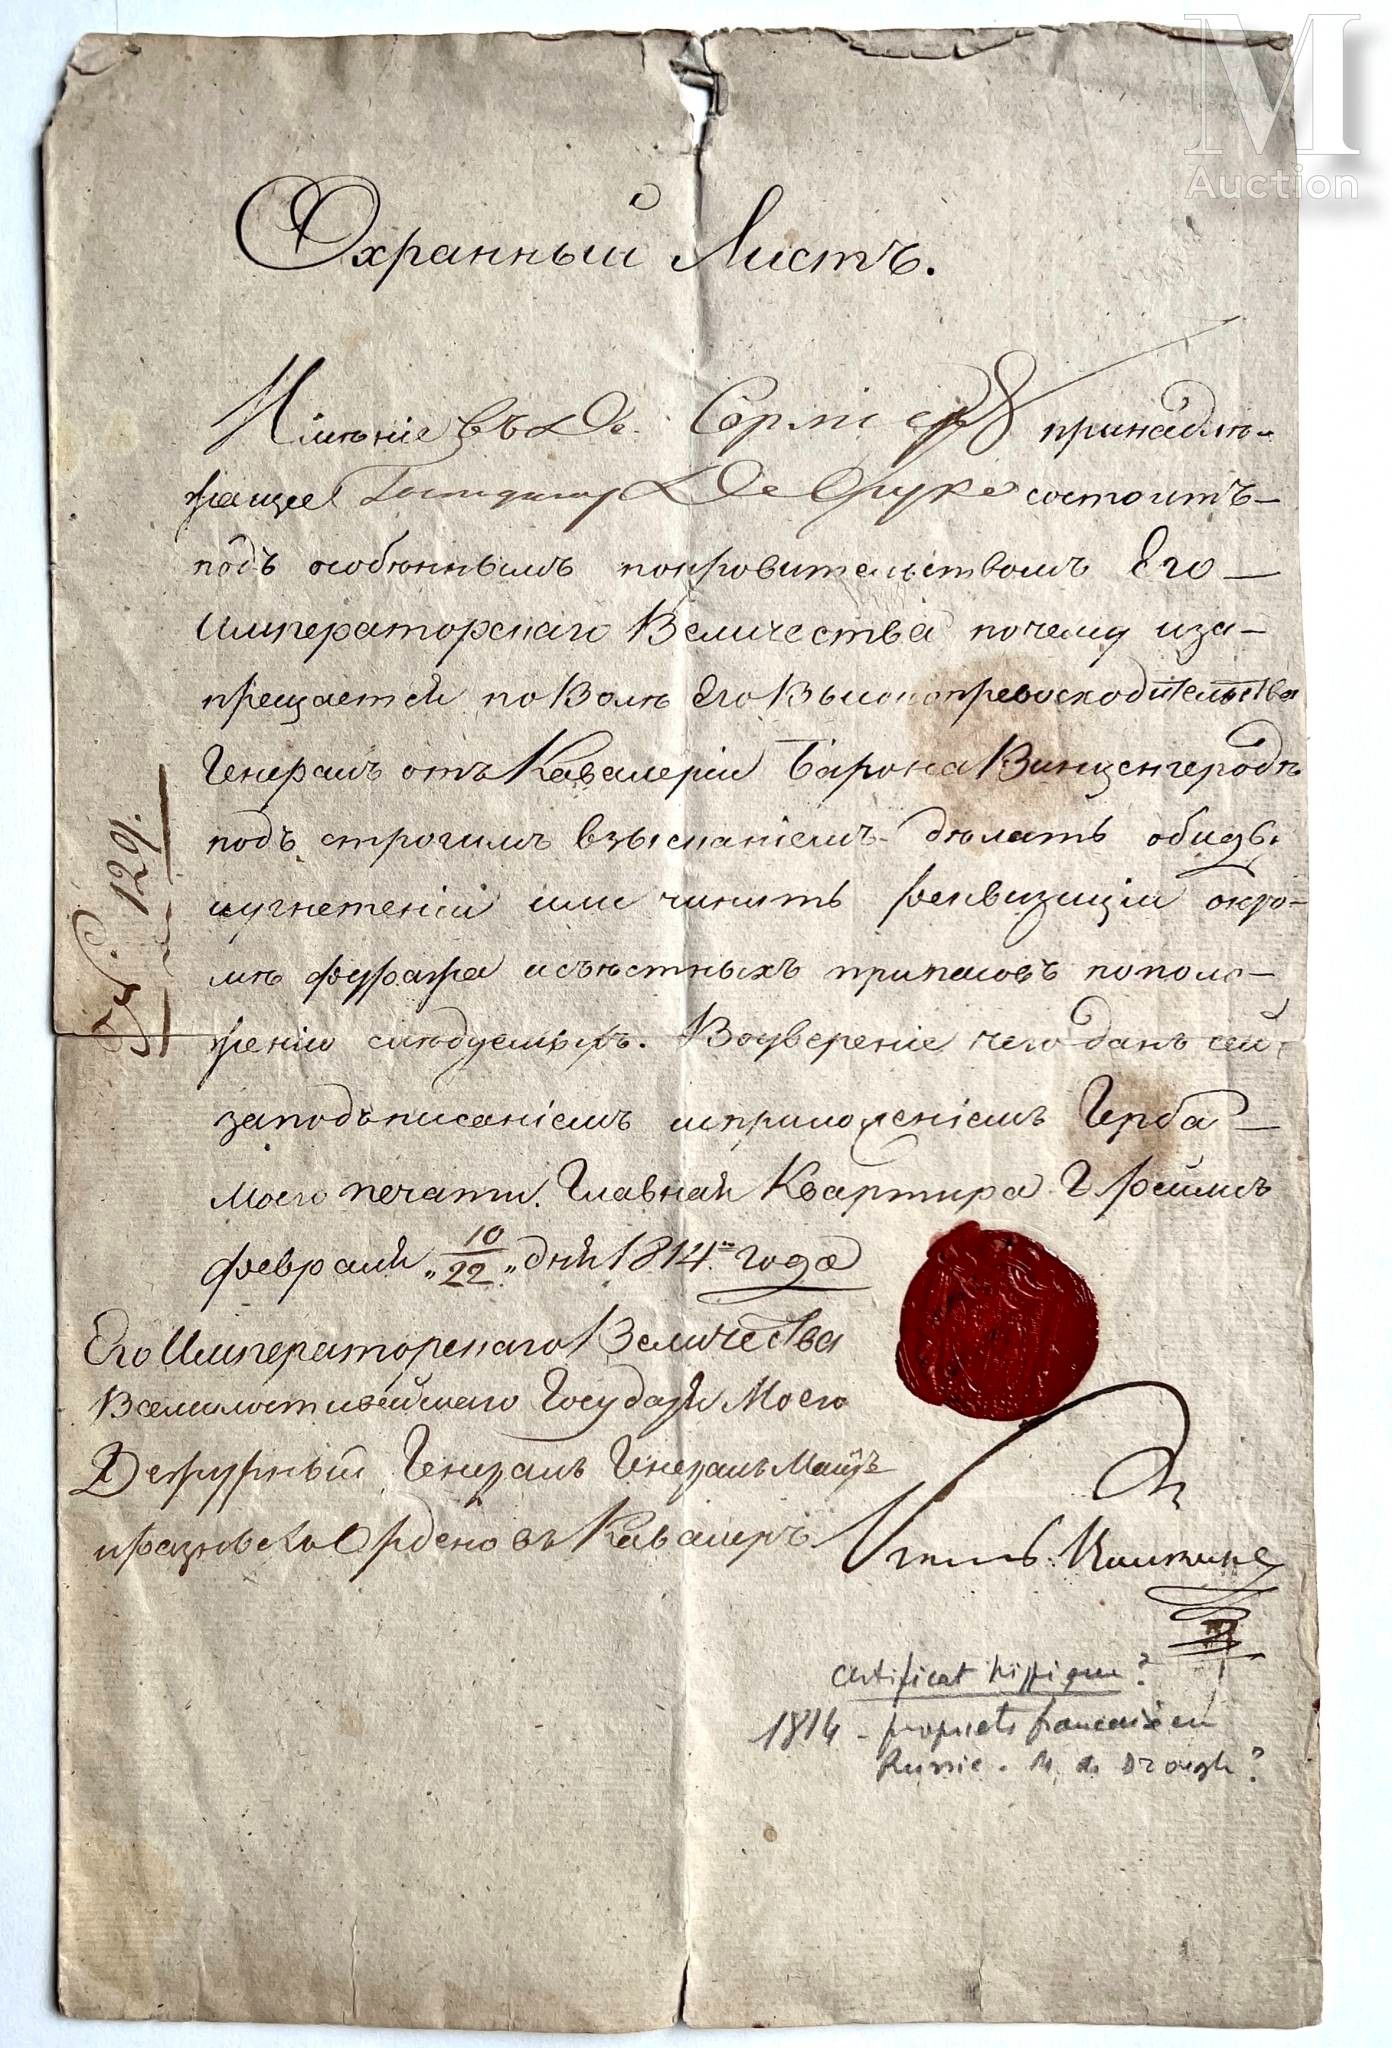 M
Auction
Охранный Листъ.
Имѣніе въ Де. Серми принадлѣ-
жащее Господину Де Друке состоитъ
подъ особѣннымъ покровительствомъ Его
Императорскаго Величества почему иза-
прещается по Волѣ Его Высокопревосходительства
Генералъ отъ Кавалеріи Барона Винценгероде
подъ строгимъ взысканіемъ дѣлать обиды
иугнетеніи или чинить реквизиціи окро-
мѣ фуража исъѣстныхъ припасовъ пополо-
женію слѣдуемыхъ. Воувереніе чего данъ сей
заподъписаніемъ иприложеніемъ Герба
моего печати. Главная Квартира Г Реймсъ
февраля „10/22„ дня 1814го года
Его Императорскаго Величества
Всемилостивейшаго Государя Моего
Дежурный Генералъ Генералъ Маіоръ
иразныхъ Орденовъ Кавалеръ
№ 129.
certificat hippique?
1814 - propriété française en
Russie. M. de Drough?